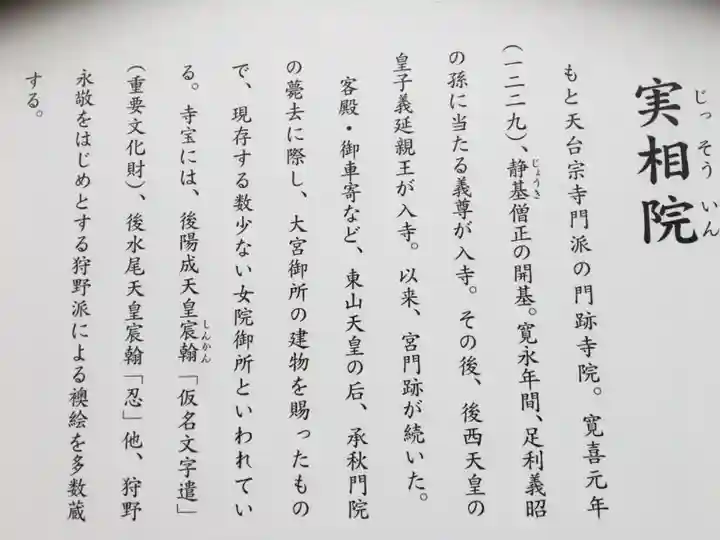 実相院
じっそういん
もと天台宗寺門派の門跡寺院。寛喜元年
(一二二九)、静基僧正の開基。寛永年間、足利義昭
じょうき
の孫に当たる義尊が入寺。その後、後西天皇の
皇子義延親王が入寺。以来、宮門跡が続いた。
客殿・御車寄など、東山天皇の后、承秋門院
の薨去に際し、大宮御所の建物を賜ったもの
で、現存する数少ない女院御所といわれてい
る。寺宝には、後陽成天皇宸翰「仮名文字遣」
しんかん
(重要文化財)、後水尾天皇宸翰「忍」他、狩野
永敬をはじめとする狩野派による襖絵を多数蔵
する。